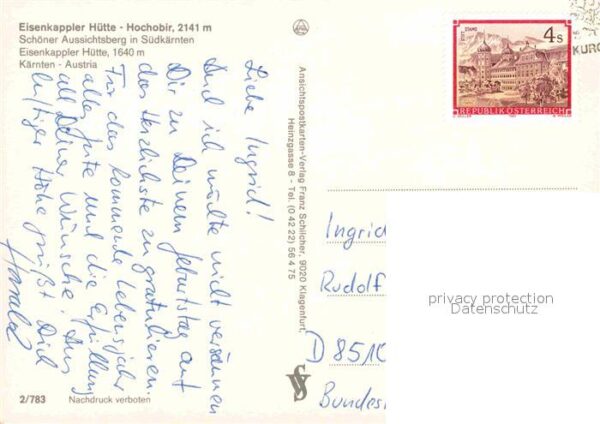 Eisenkappler Hütte - Hochobir, 2141 m
Schöner Aussichtsberg in Südkärnten
Eisenkappler Hütte, 1640 m
Kärnten - Austria
Liebe Ingrid!
Und ich möchte nicht versäumen
Dir zu Deinem Geburtstag auf
das Herzlichste zu gratulieren.
Für das kommende Lebensjahr
alles Gute und die Erfüllung
all Deiner Wünsche! Aus
luftiger Höhe grüßt Dich
Harald
2/783 Nachdruck verboten
Ansichtspostkarten-Verlag Franz Schilcher, 9020 Klagenfurt,
Heinzgasse 8 - Tel. (0 42 22) 56 4 75
4 s
STIFT STAMS
REPUBLIK ÖSTERREICH
KURO
Ingrid
Rudolf
D 8510
Bundes
privacy protection
Datenschutz